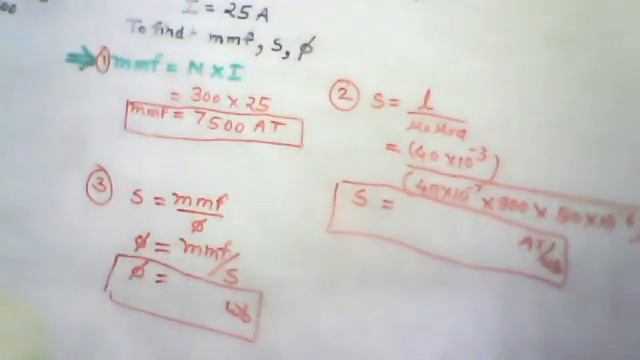 I = 25A
To find:- mmf, S, ϕ
① mmf = N × I
= 300 × 25
mmf = 7500 AT
② S = l / μ₀μᵣa
= (40×10⁻³)
S =
AT/wb
③ S = mmf / ϕ
ϕ = mmf/S
ϕ =
wb